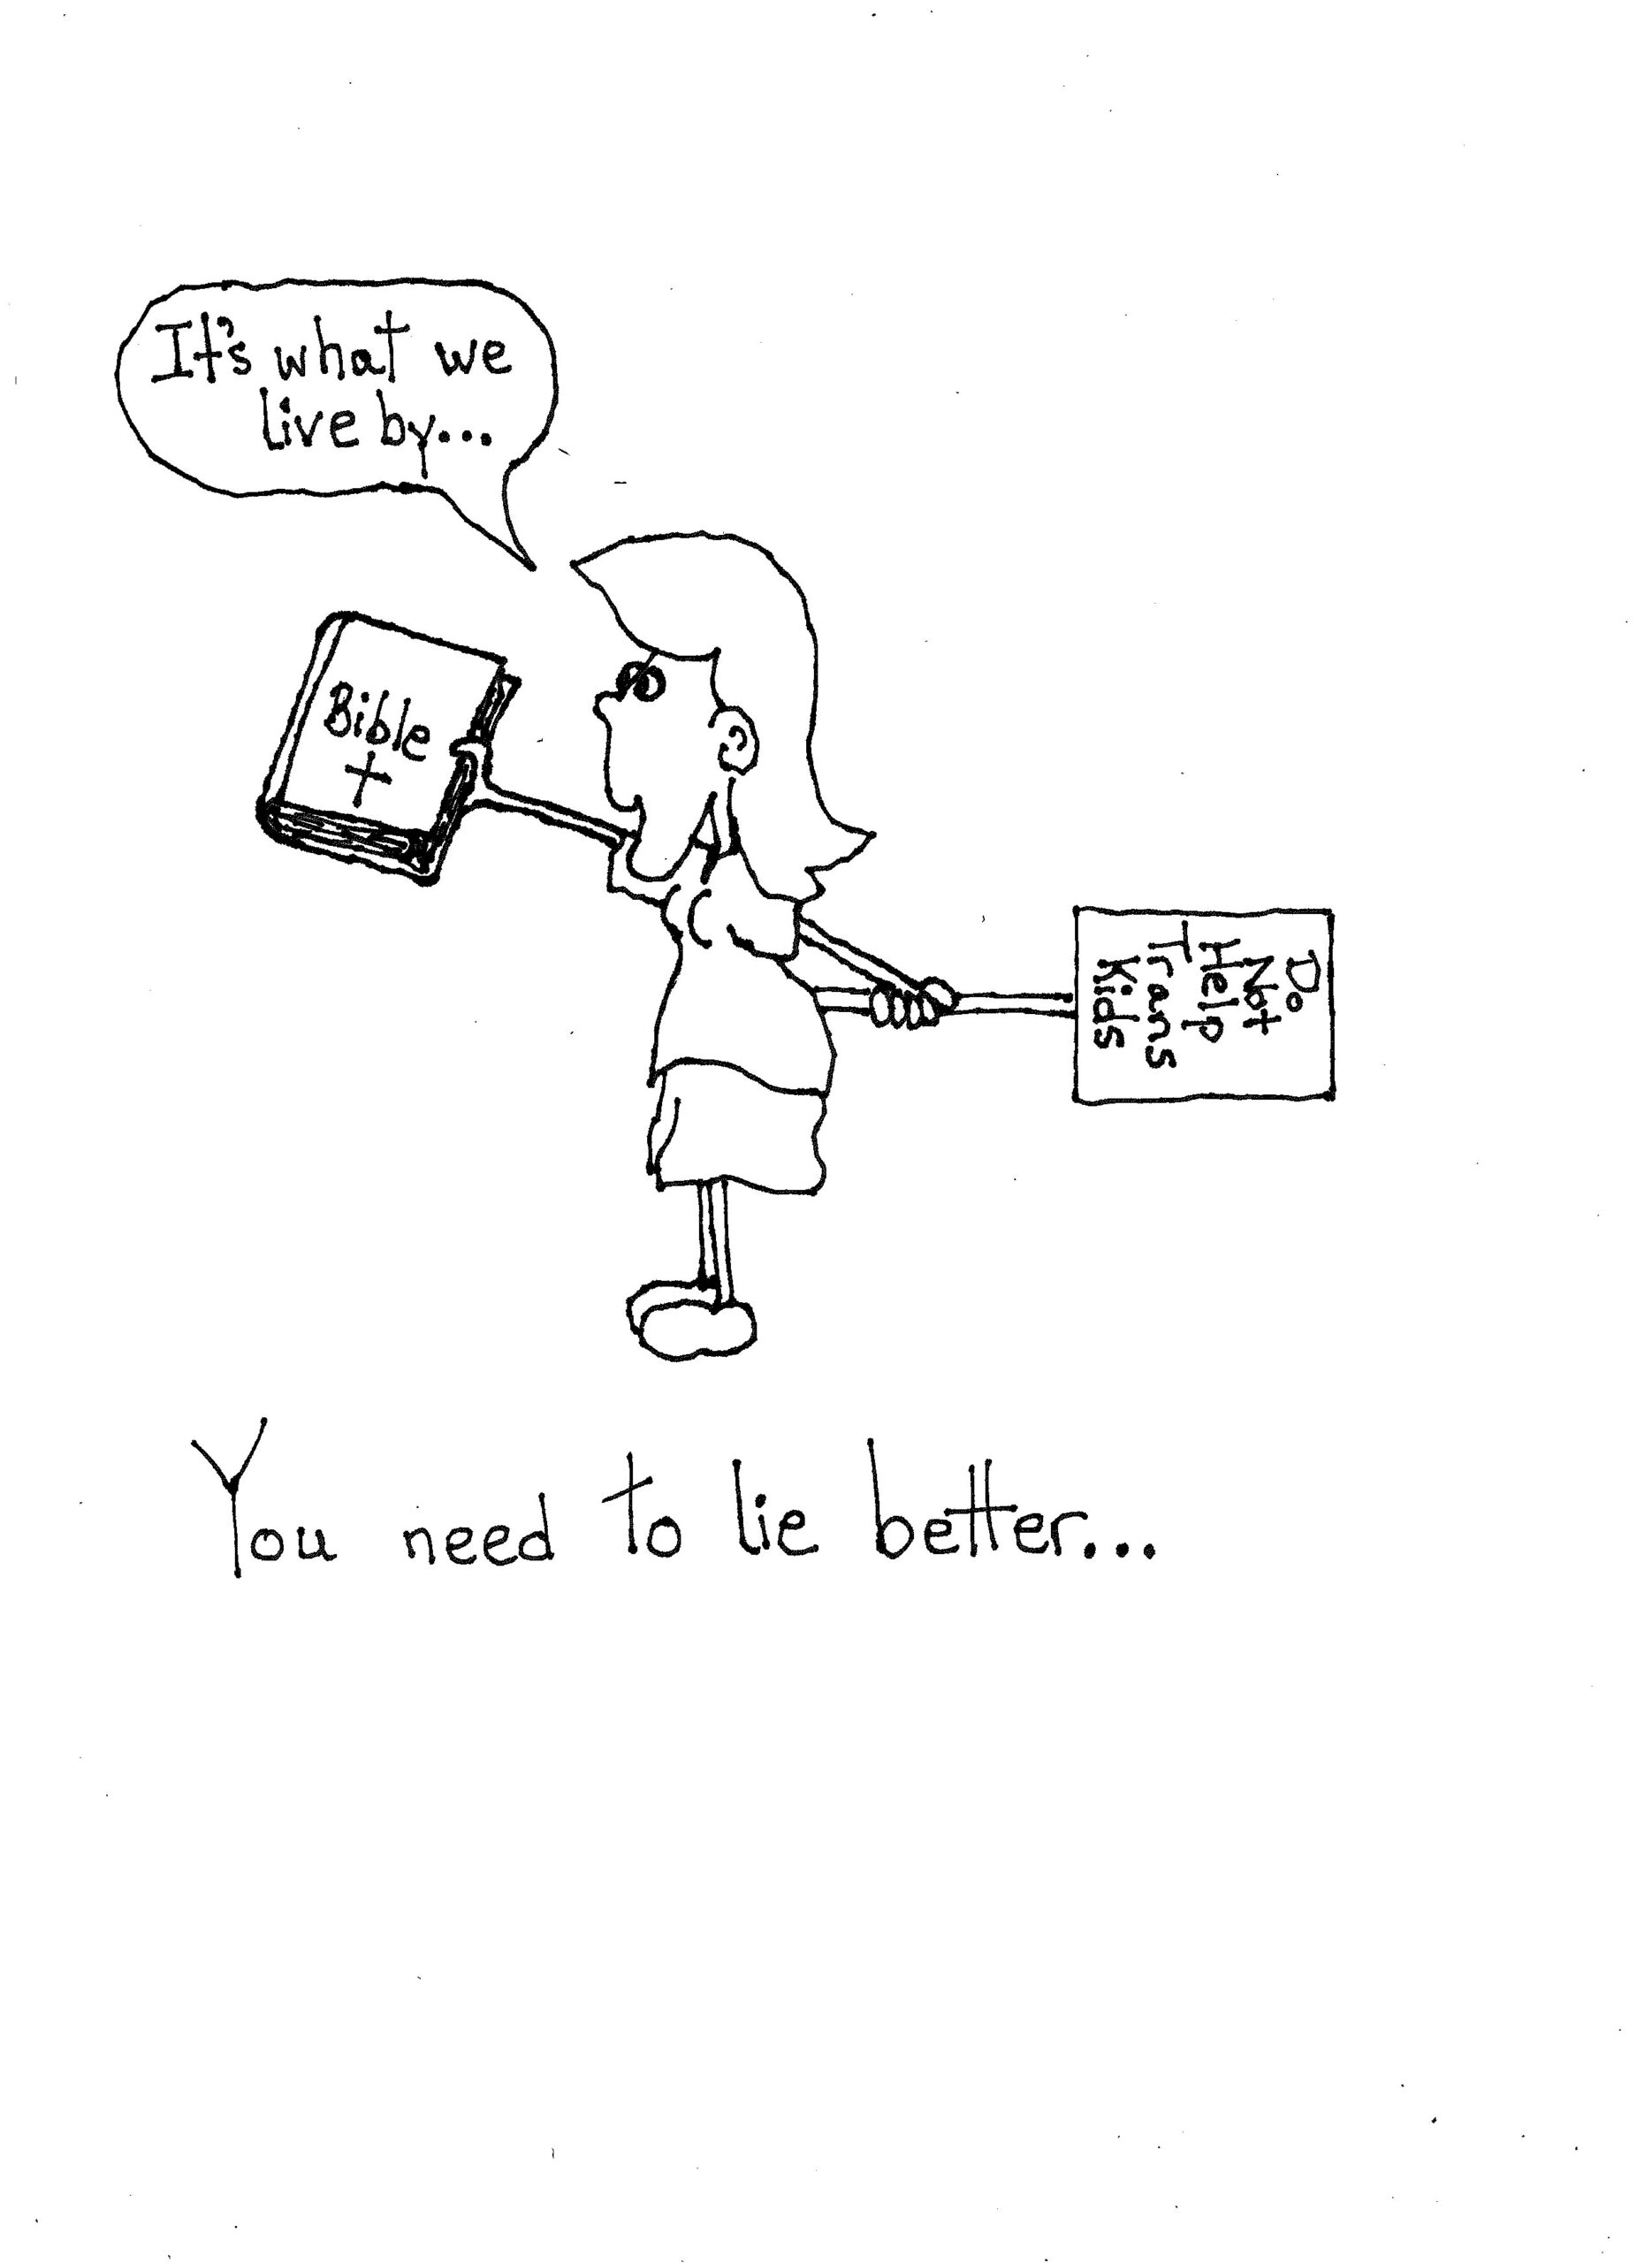 It's what we
live by...
Bible
Do
Not
Help
Trans
Kids
You need to lie better...